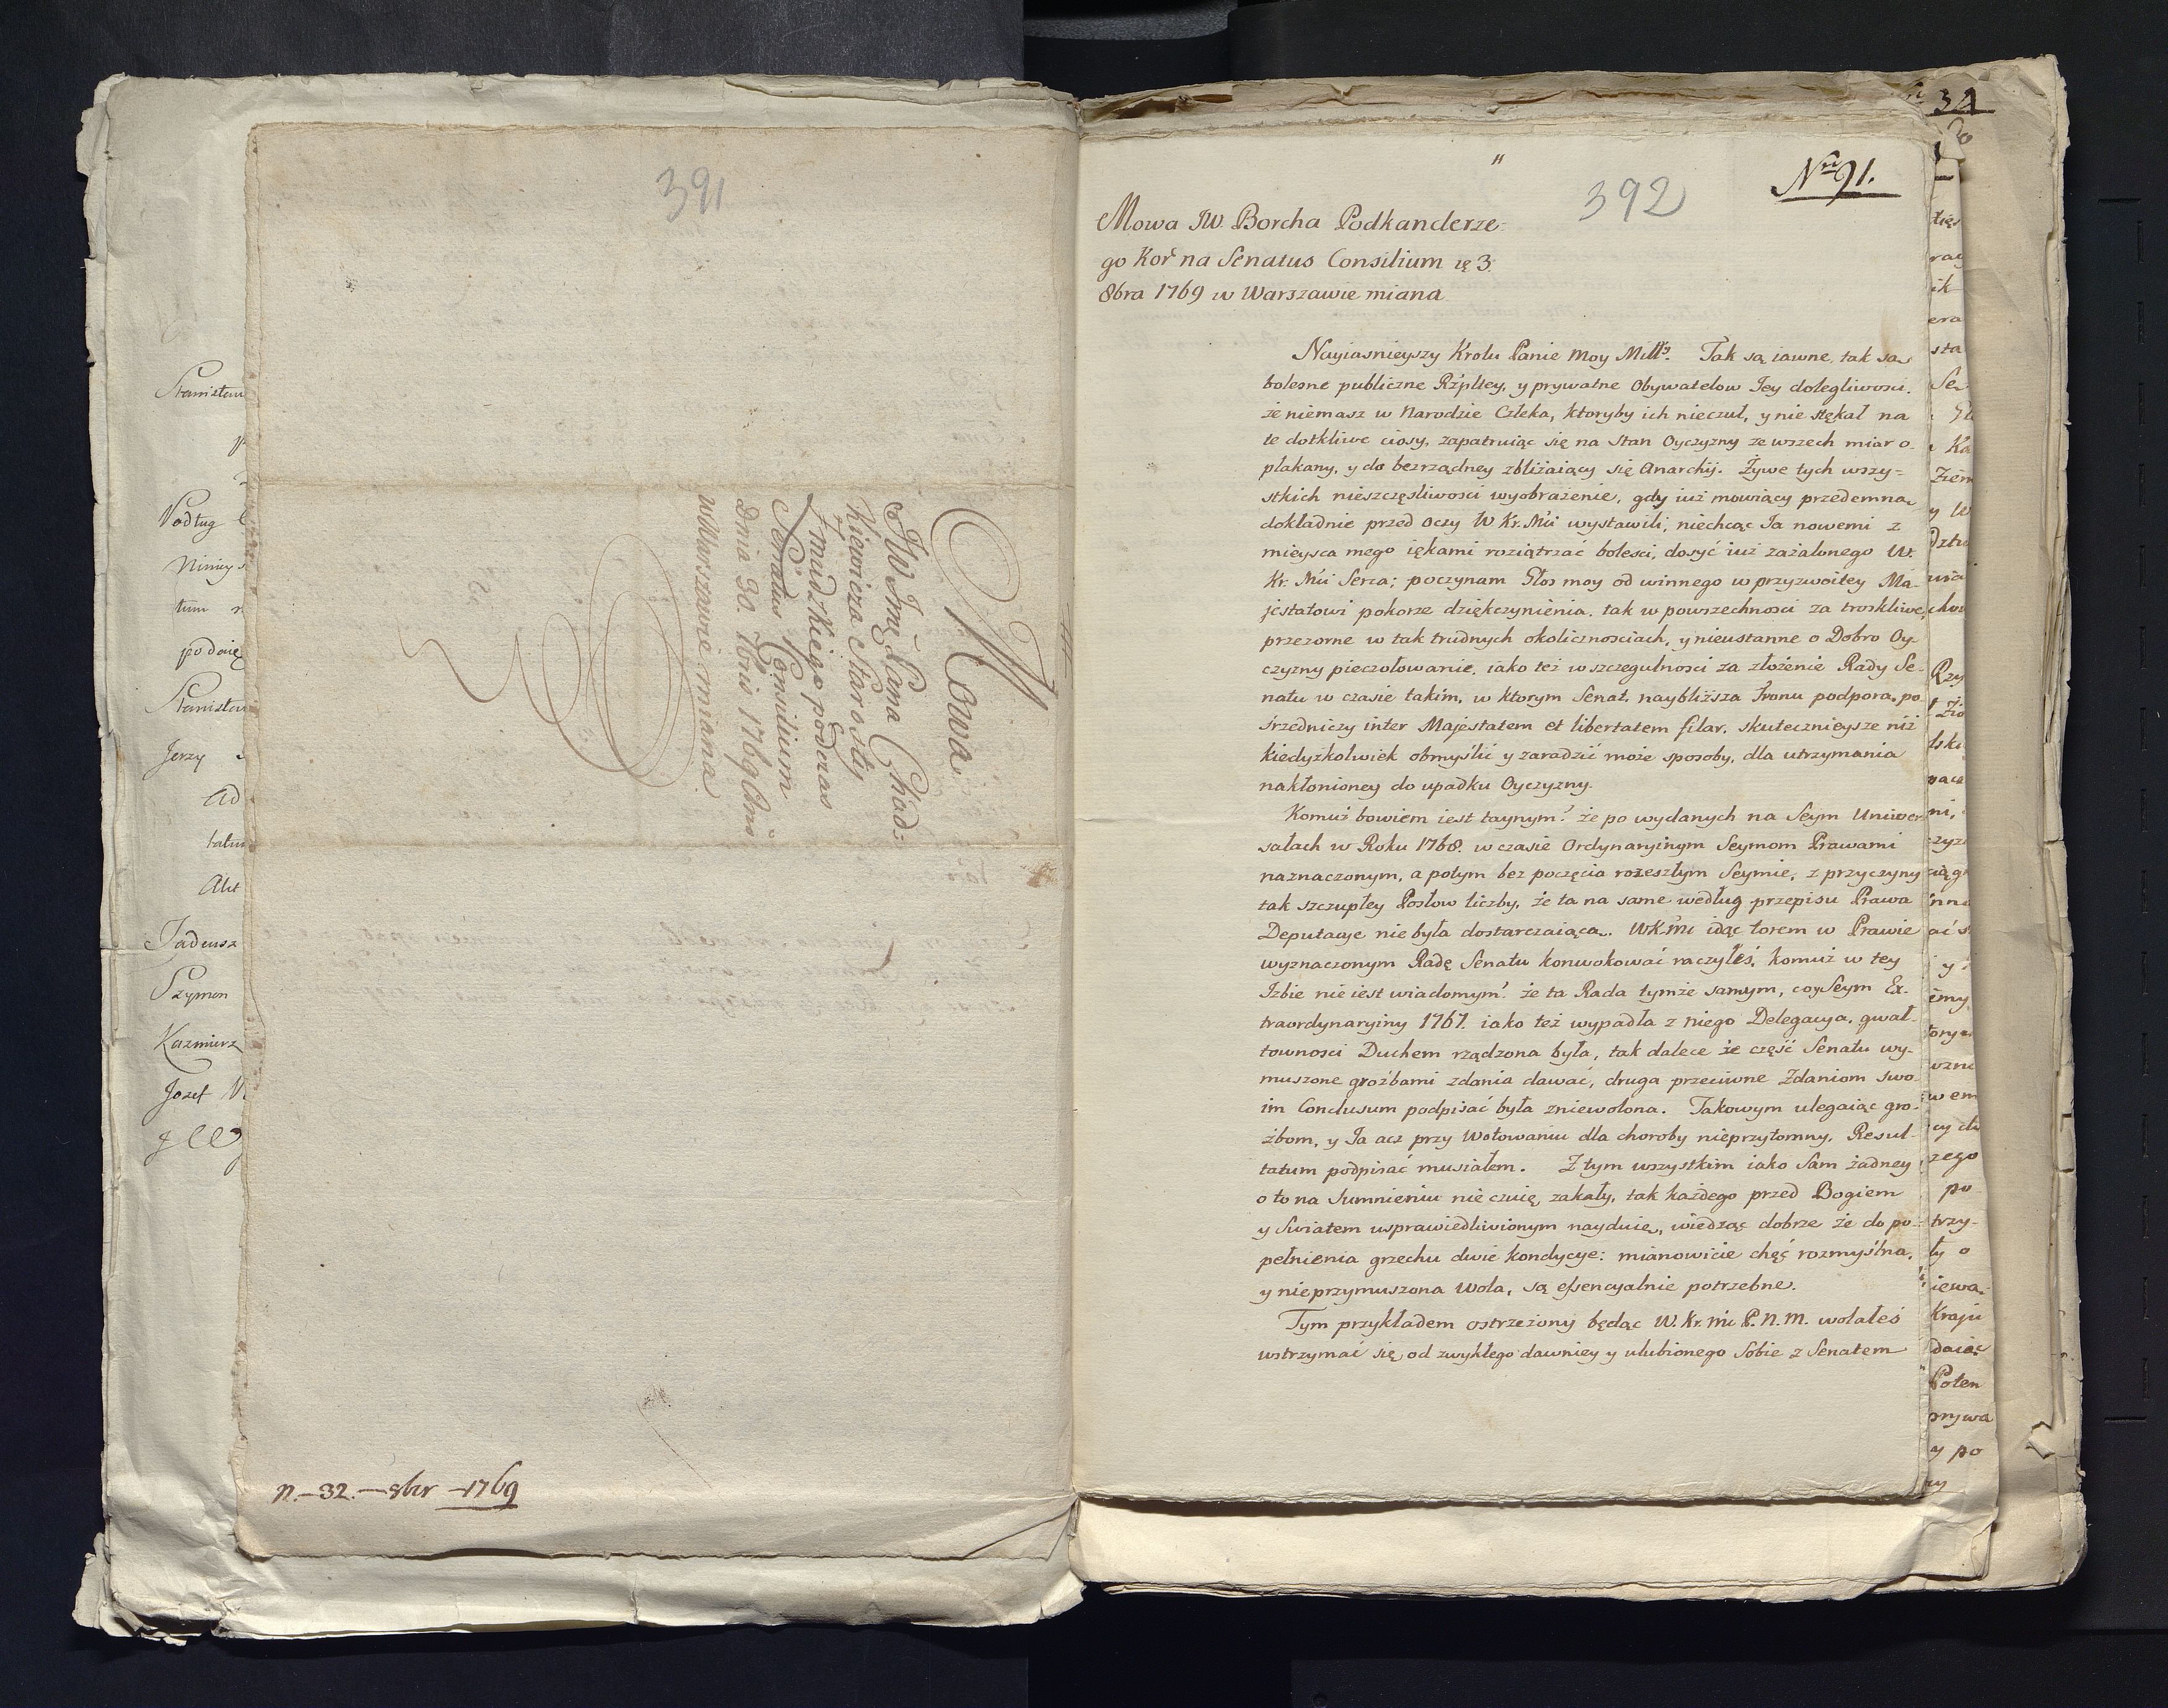 391
Mowa
JW Jmę Pana Chod=
kiewicza Starosty
Zmudzkiego podczas
Senatus Consilium
Dnia 30. 7bris 1769 Anno
w Warszawie miana.
n.–32.–8br–1769
Stanisław
Podług
Niniey
tum
podnię
Stanisław
Jerzy
Ad
tatum
Akt
Tadeusz
Szymon
Kazmierz
Jozef
34
"
392
Nro 91.
Mowa JW. Borcha Podkanclerze=
go Kor na Senatus Consilium ię 3.
8bra 1769 w Warszawie miana
Nayiasnieyszy Krolu Panie Moy Miłł. Tak są iawne, tak są
bolesne publiczne Rzpltey, y prywatne Obywatelow Jey dolegliwosci.
że niemasz w Narodzie Człeka, ktoryby ich nieczuł, y nie stękał na
te dotkliwe ciosy, zapatruiąc się na Stan Oyczyzny ze wszech miar o=
płakany, y do bezrządney zbliżaiący się Anarchij. Żywe tych wszy=
stkich nieszczęsliwosci wyobrażenie, gdy iuż mowiący przedemną
dokładnie przed oczy W Kr. Mci wystawili; niechcąc Ja nowemi z
mieysca mego iękami roziątrzać bolesci, dosyć iuż zażalonego W.
Kr. Mci Serca; poczynam Głos moy od winnego w przyzwoitey Ma=
jestatowi pokorze dziękczynienia. tak w powszechnosci za troskliwe,
przezorne w tak trudnych okolicznosciach, y nieustanne o Dobro Oy=
czyzny pieczołowanie, iako też w szczegulnosci za złożenie Rady Se=
natu w czasie takim, w ktorym Senat, naybliższa Tronu podpora, po=
srzedniczy inter Majestatem et libertatem filar, skutecznieysze niż
kiedyżkolwiek obmyslić y zaradzić może sposoby, dla utrzymania
nakłonioney do upadku Oyczyzny.
Komuż bowiem iest taynym? że po wydanych na Seym Uniwer=
sałach w Roku 1768. w czasie Ordynaryinym Seymom Prawami
naznaczonym, a potym bez poczęcia rozeszłym Seymie, z przyczyny
tak szczupłey Posłow liczby, że ta na same według przepisu Prawa
Deputacye nie była dostarczaiąca. WKMć idąc torem w Prawie
wyznaczonym Radę Senatu konwokować raczyłeś. Komuż w tey
Izbie nie iest wiadomym? że ta Rada tymże samym, co y Seym Ex=
traordynaryiny 1767. iako też wypadła z niego Delegacya, gwał=
townosci Duchem rządzona była, tak dalece że część Senatu wy=
muszone groźbami zdania dawać, druga przeciwne Zdaniom swo=
im Conclusum podpisać była zniewolona. Takowym ulegaiąc gro=
źbom, y Ja acz przy Wotowaniu dla choroby nieprzytomny, Resul=
tatum podpisać musiałem. Z tym wszystkim iako Sam żadney
o to na Sumnieniu nie czuię zakały, tak każdego przed Bogiem
y Swiatem usprawiedliwionym nayduię, wiedząc dobrze że do po=
pełnienia grzechu dwie kondycye: mianowicie chęć rozmyślna,
y nieprzymuszona Wola, są essencyalnie potrzebne.
Tym przykładem ostrzeżony będąc W. Kr. Mć P. N. M. wolałeś
wstrzymać się od zwykłego dawniey y ulubionego Sobie z Senatem